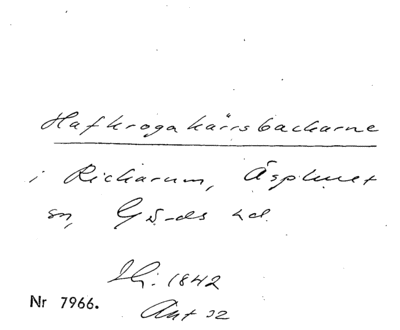 Hafkrogakärrsbackarne
i Rickarum, Äsphult
sn, Gärds hd.
1842
Nr 7966.
Akt 32